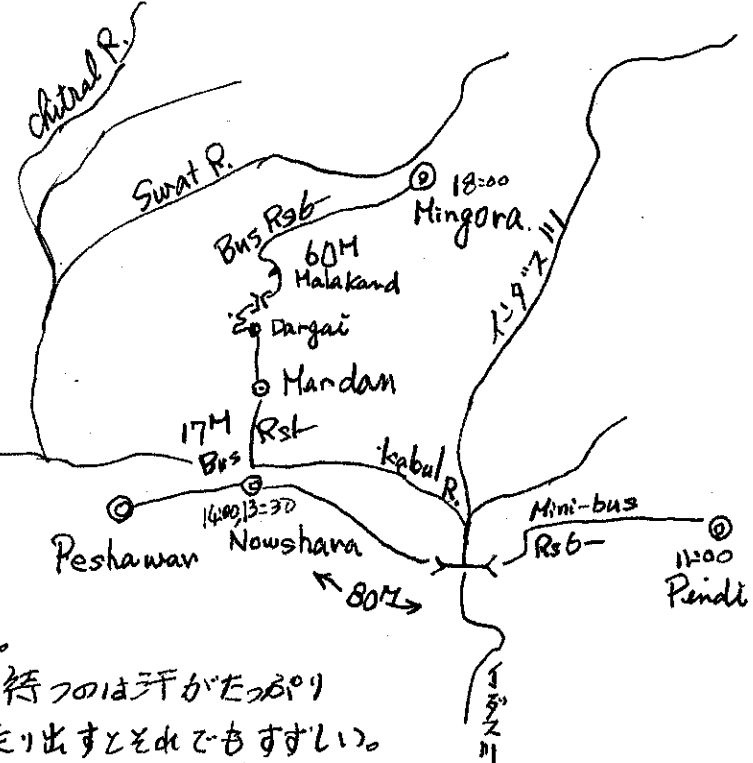 Chitral R.
Swat R.
18:00
Mingora.
Bus Rs6-
60M
Malakand
Dargai
インダス川
Mardan
17M
Bus
Rs1-
Kabul
R.
Mini-bus
Rs6-
14:00, 13=30
Nowshara
Peshawar
11:00
Pindi
80M
インダス川
待つのは汗がたっぷり
走り出すとそれでもすずしい。